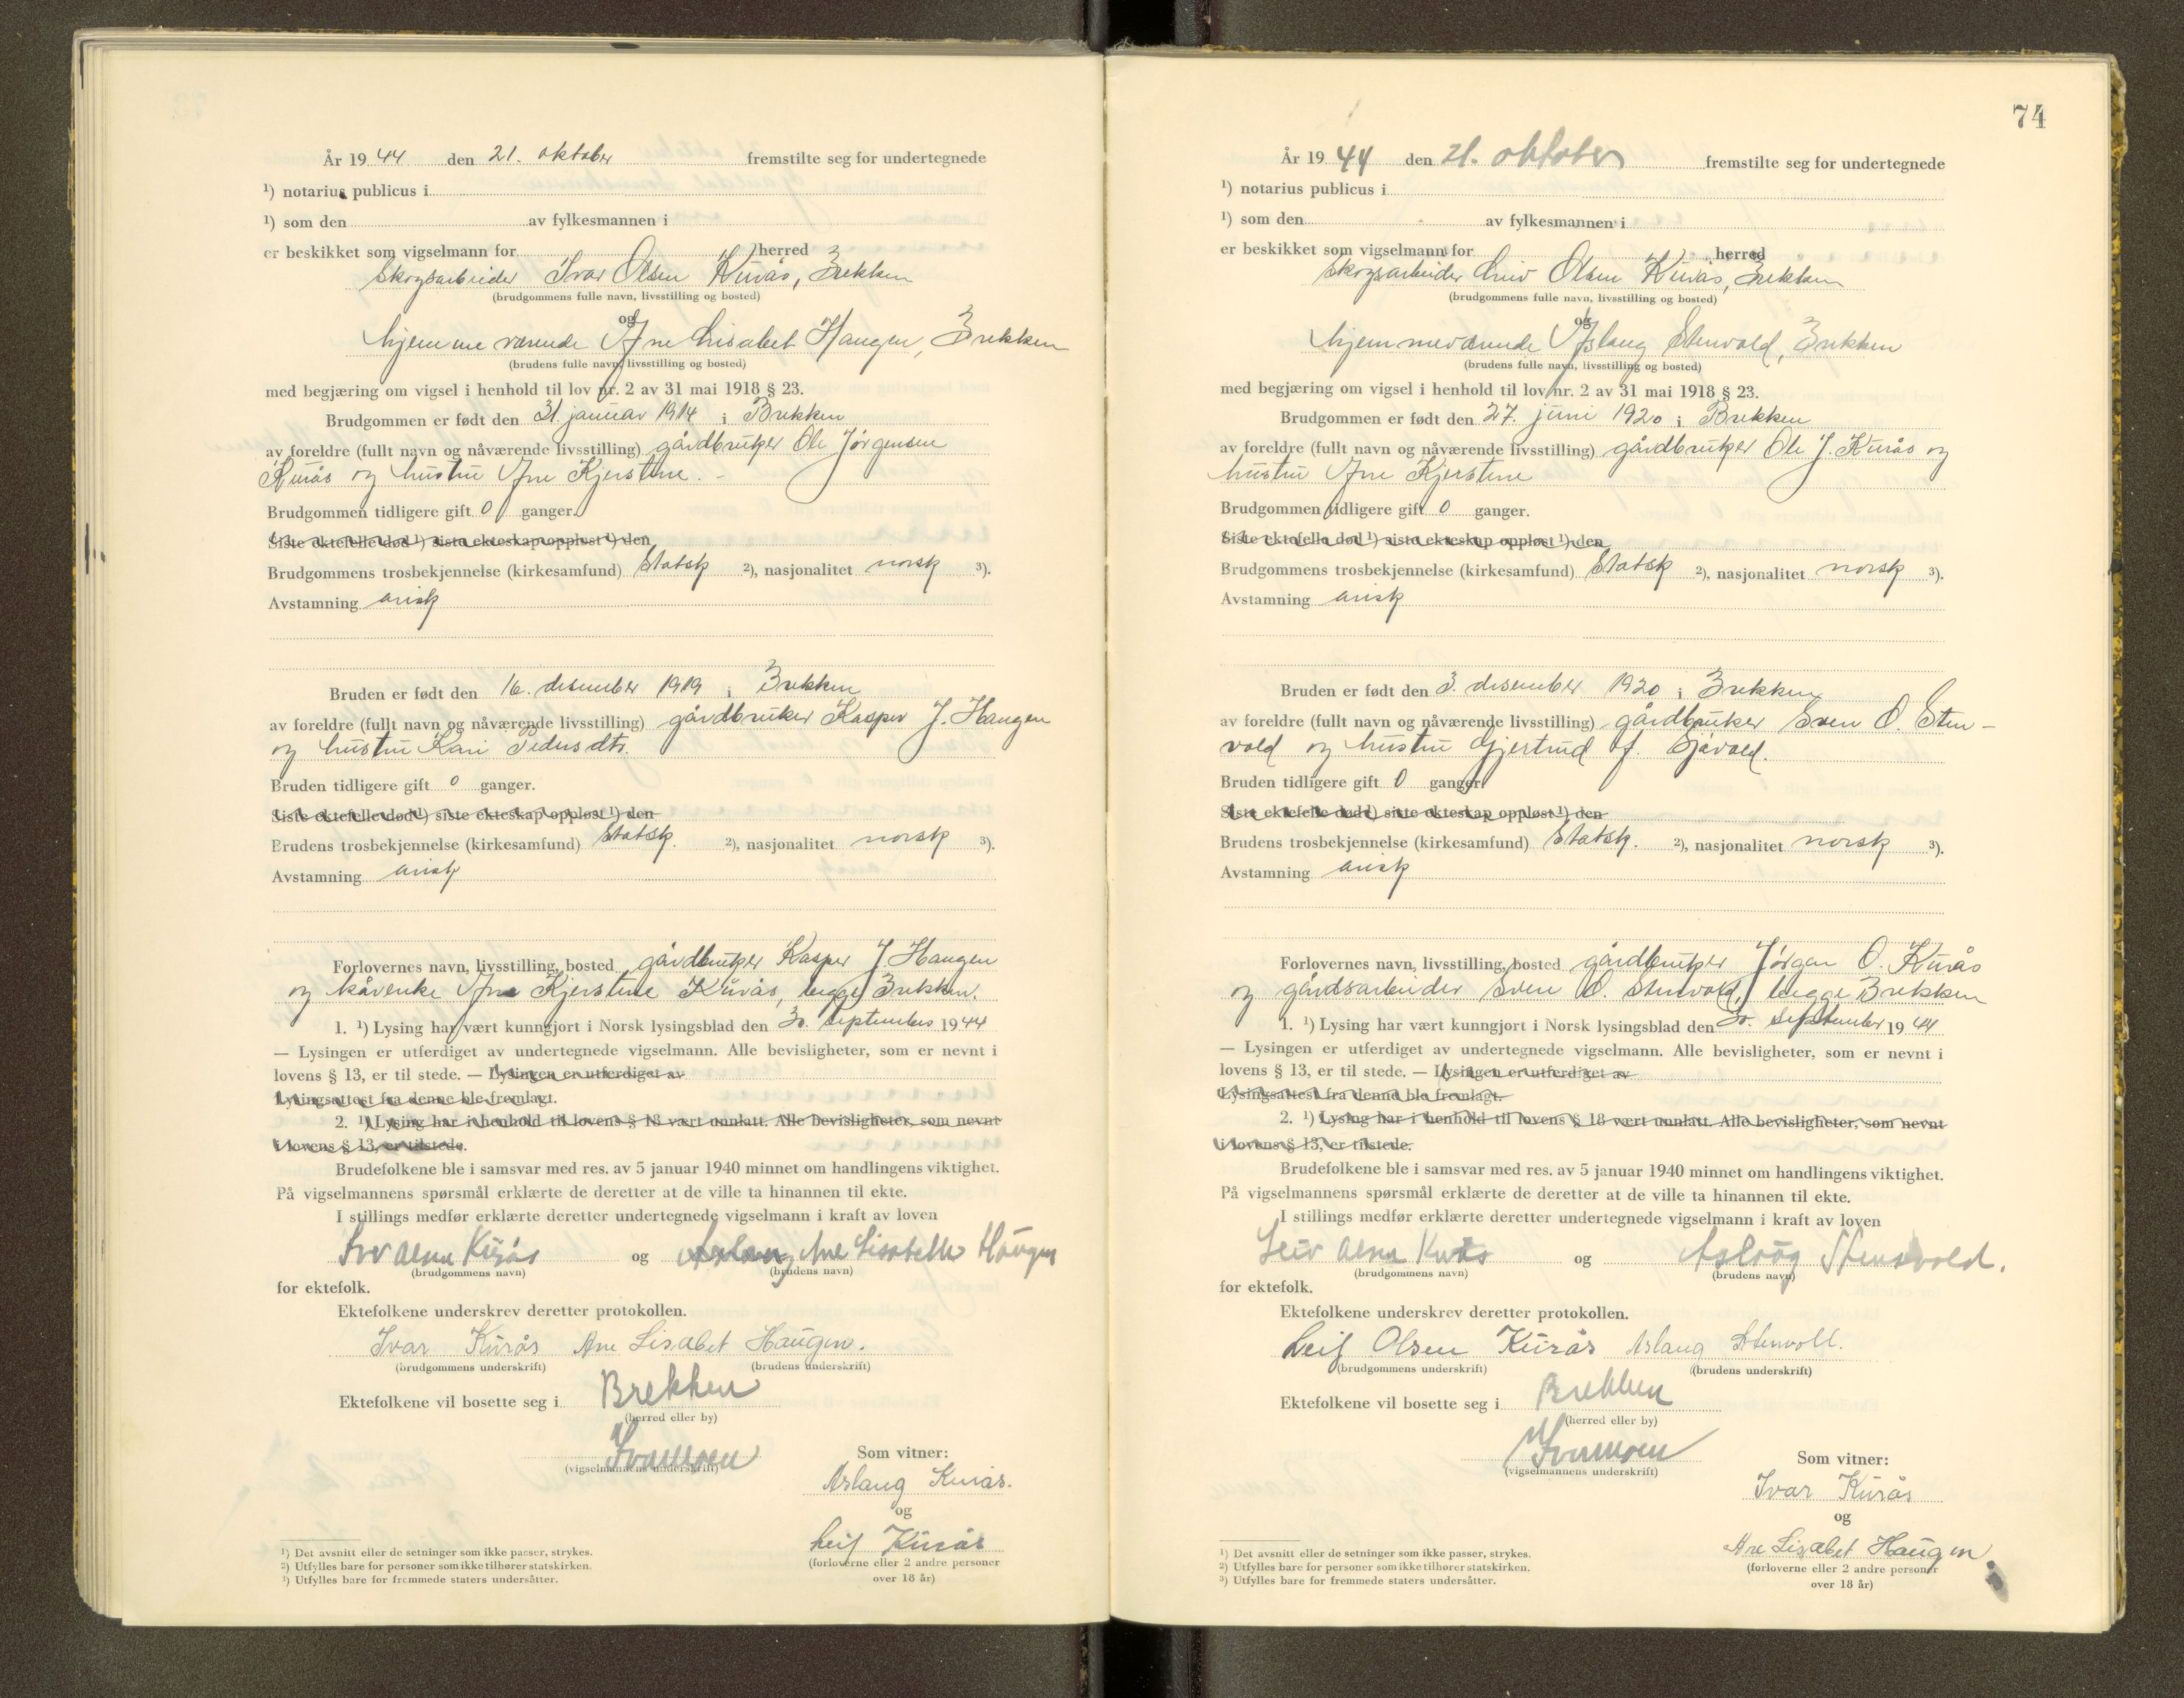 År 19 44 den 21. oktober fremstilte seg for undertegnede
¹) notarius publicus i
¹) som den av fylkesmannen i
er beskikket som vigselmann for herred
Skogsarbeider Ivar Olsen Kurås, Brekken
(brudgommens fulle navn, livsstilling og bosted)
og
hjemmeværende Ane Lisabet Haugen, Brekken
(brudens fulle navn, livsstilling og bosted)
med begjæring om vigsel i henhold til lov nr. 2 av 31 mai 1918 § 23.
Brudgommen er født den 31. januar 1914 i Brekken
av foreldre (fullt navn og nåværende livsstilling) gårdbruker Ole Jørgensen
Kurås og hustru Ane Kjerstine.
Brudgommen tidligere gift 0 ganger.
Siste ektefelle død ¹) siste ekteskap oppløst ¹) den
Brudgommens trosbekjennelse (kirkesamfund) Statsk ²), nasjonalitet norsk ³).
Avstamning arisk
Bruden er født den 16. desember 1919 i Brekken
av foreldre (fullt navn og nåværende livsstilling) gårdbruker Kasper J. Haugen
og hustru Kari Pedersdtr.
Bruden tidligere gift 0 ganger.
Siste ektefelle død ¹) siste ekteskap oppløst ¹) den
Brudens trosbekjennelse (kirkesamfund) Statsk. ²), nasjonalitet norsk ³).
Avstamning arisk
Forlovernes navn, livsstilling, bosted gårdbruker Kasper J. Haugen
og kårenke Ane Kjerstine Kurås, begge Brekken.
1. ¹) Lysing har vært kunngjort i Norsk lysingsblad den 30. september 1944
— Lysingen er utferdiget av undertegnede vigselmann. Alle bevisligheter, som er nevnt i
lovens § 13, er til stede. — Lysingen er utferdiget av
Lysingsattest fra denne ble fremlagt.
2. ¹) Lysing har i henhold til lovens § 18 vært unnlatt. Alle bevisligheter, som nevnt
i lovens § 13, er tilstede.
Brudefolkene ble i samsvar med res. av 5 januar 1940 minnet om handlingens viktighet.
På vigselmannens spørsmål erklærte de deretter at de ville ta hinannen til ekte.
I stillings medfør erklærte deretter undertegnede vigselmann i kraft av loven
Kurås og Ane Lisabeth Haugen
(brudgommens navn) (brudens navn)
for ektefolk.
Ektefolkene underskrev deretter protokollen.
Ivar Kurås Ane Lisabet Haugen.
(brudgommens underskrift) (brudens underskrift)
Ektefolkene vil bosette seg i Brekken
(herred eller by)
(vigselmannens underskrift)
Som vitner:
Aslaug Kurås.
og
Leif Kurås
(forloverne eller 2 andre personer
over 18 år)
¹) Det avsnitt eller de setninger som ikke passer, strykes.
²) Utfylles bare for personer som ikke tilhører statskirken.
³) Utfylles bare for fremmede staters undersåtter.
74
År 19 44 den 21. oktober fremstilte seg for undertegnede
¹) notarius publicus i
¹) som den av fylkesmannen i
er beskikket som vigselmann for herred
Skogsarbeider Leiv Olsen Kurås, Brekken
(brudgommens fulle navn, livsstilling og bosted)
og
hjemmeværende Aslaug Stenvold, Brekken
(brudens fulle navn, livsstilling og bosted)
med begjæring om vigsel i henhold til lov nr. 2 av 31 mai 1918 § 23.
Brudgommen er født den 27. juni 1920 i Brekken
av foreldre (fullt navn og nåværende livsstilling) gårdbruker Ole J. Kurås og
hustru Ane Kjerstine
Brudgommen tidligere gift 0 ganger.
Siste ektefelle død ¹) siste ekteskap oppløst ¹) den
Brudgommens trosbekjennelse (kirkesamfund) Statsk ²), nasjonalitet norsk ³).
Avstamning arisk
Bruden er født den 3. desember 1920 i Brekken
av foreldre (fullt navn og nåværende livsstilling) gårdbruker Sven O. Sten-
vold og hustru Gjertrud f. Sjåvold.
Bruden tidligere gift 0 ganger.
Siste ektefelle død ¹) siste ekteskap oppløst ¹) den
Brudens trosbekjennelse (kirkesamfund) Statsk. ²), nasjonalitet norsk ³).
Avstamning arisk
Forlovernes navn, livsstilling, bosted gårdbruker Jørgen O. Kurås
og gårdsarbeider Sven O. Stenvold, begge Brekken
1. ¹) Lysing har vært kunngjort i Norsk lysingsblad den 30. september 1944
— Lysingen er utferdiget av undertegnede vigselmann. Alle bevisligheter, som er nevnt i
lovens § 13, er til stede. — Lysingen er utferdiget av
Lysingsattest fra denne ble fremlagt.
2. ¹) Lysing har i henhold til lovens § 18 vært unnlatt. Alle bevisligheter, som nevnt
i lovens § 13, er tilstede.
Brudefolkene ble i samsvar med res. av 5 januar 1940 minnet om handlingens viktighet.
På vigselmannens spørsmål erklærte de deretter at de ville ta hinannen til ekte.
I stillings medfør erklærte deretter undertegnede vigselmann i kraft av loven
Leiv Olsen Kurås og Aslaug Stensvold.
(brudgommens navn) (brudens navn)
for ektefolk.
Ektefolkene underskrev deretter protokollen.
Leif Olsen Kurås Aslaug Stenvoll.
(brudgommens underskrift) (brudens underskrift)
Ektefolkene vil bosette seg i Brekken
(herred eller by)
(vigselmannens underskrift)
Som vitner:
Ivar Kurås
og
Ane Lisabet Haugen.
(forloverne eller 2 andre personer
over 18 år)
¹) Det avsnitt eller de setninger som ikke passer, strykes.
²) Utfylles bare for personer som ikke tilhører statskirken.
³) Utfylles bare for fremmede staters undersåtter.